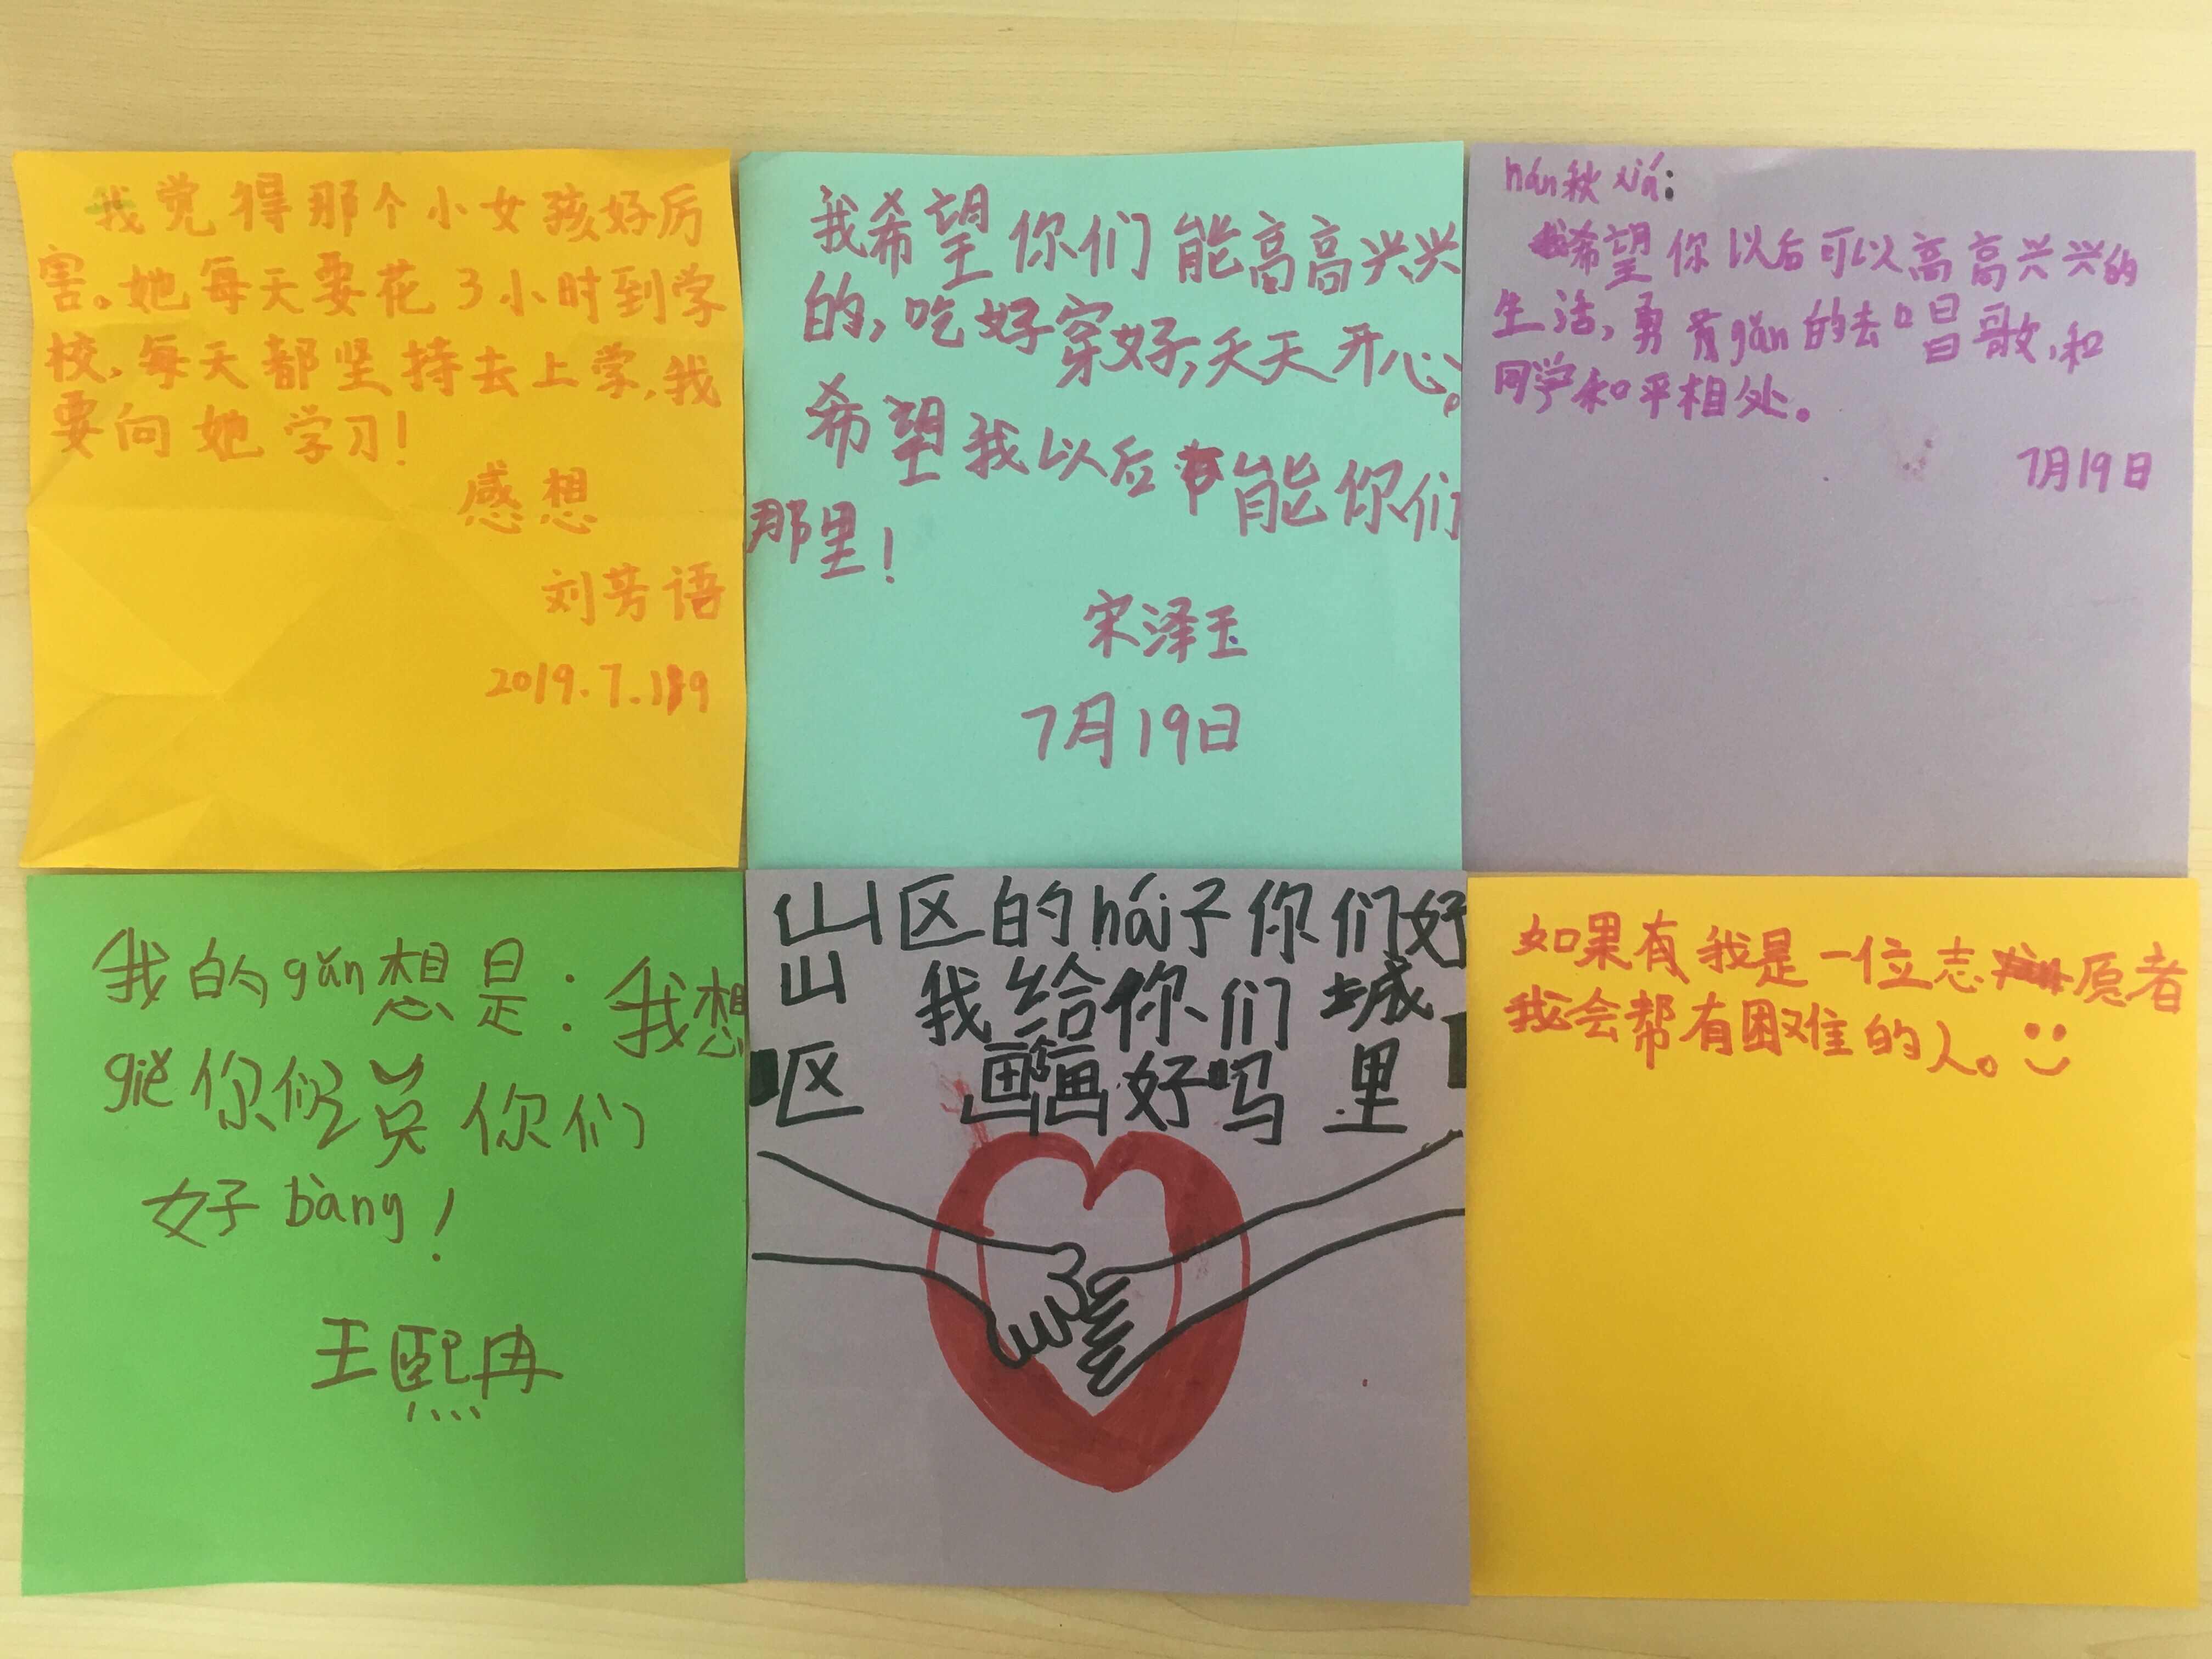 我觉得那个小女孩好厉
害。她每天要花3小时到学
校,每天都坚持去上学,我
要向她学习!
感想
刘芳语
2019.7.19
我希望你们能高高兴兴
的,吃好穿好,天天开心。
希望我以后能你们
那里!
宋泽玉
7月19日
hán秋xiá:
希望你以后可以高高兴兴的
生活,勇gǎn的去唱歌,和
同学和平相处。
7月19日
我的gǎn想是:我想
giě你们说你们
好bàng!
王熙冉
山区的hái子你们好
山 我给你们 城
区 画画好吗 里
如果有我是一位志愿者
我会帮有困难的人。